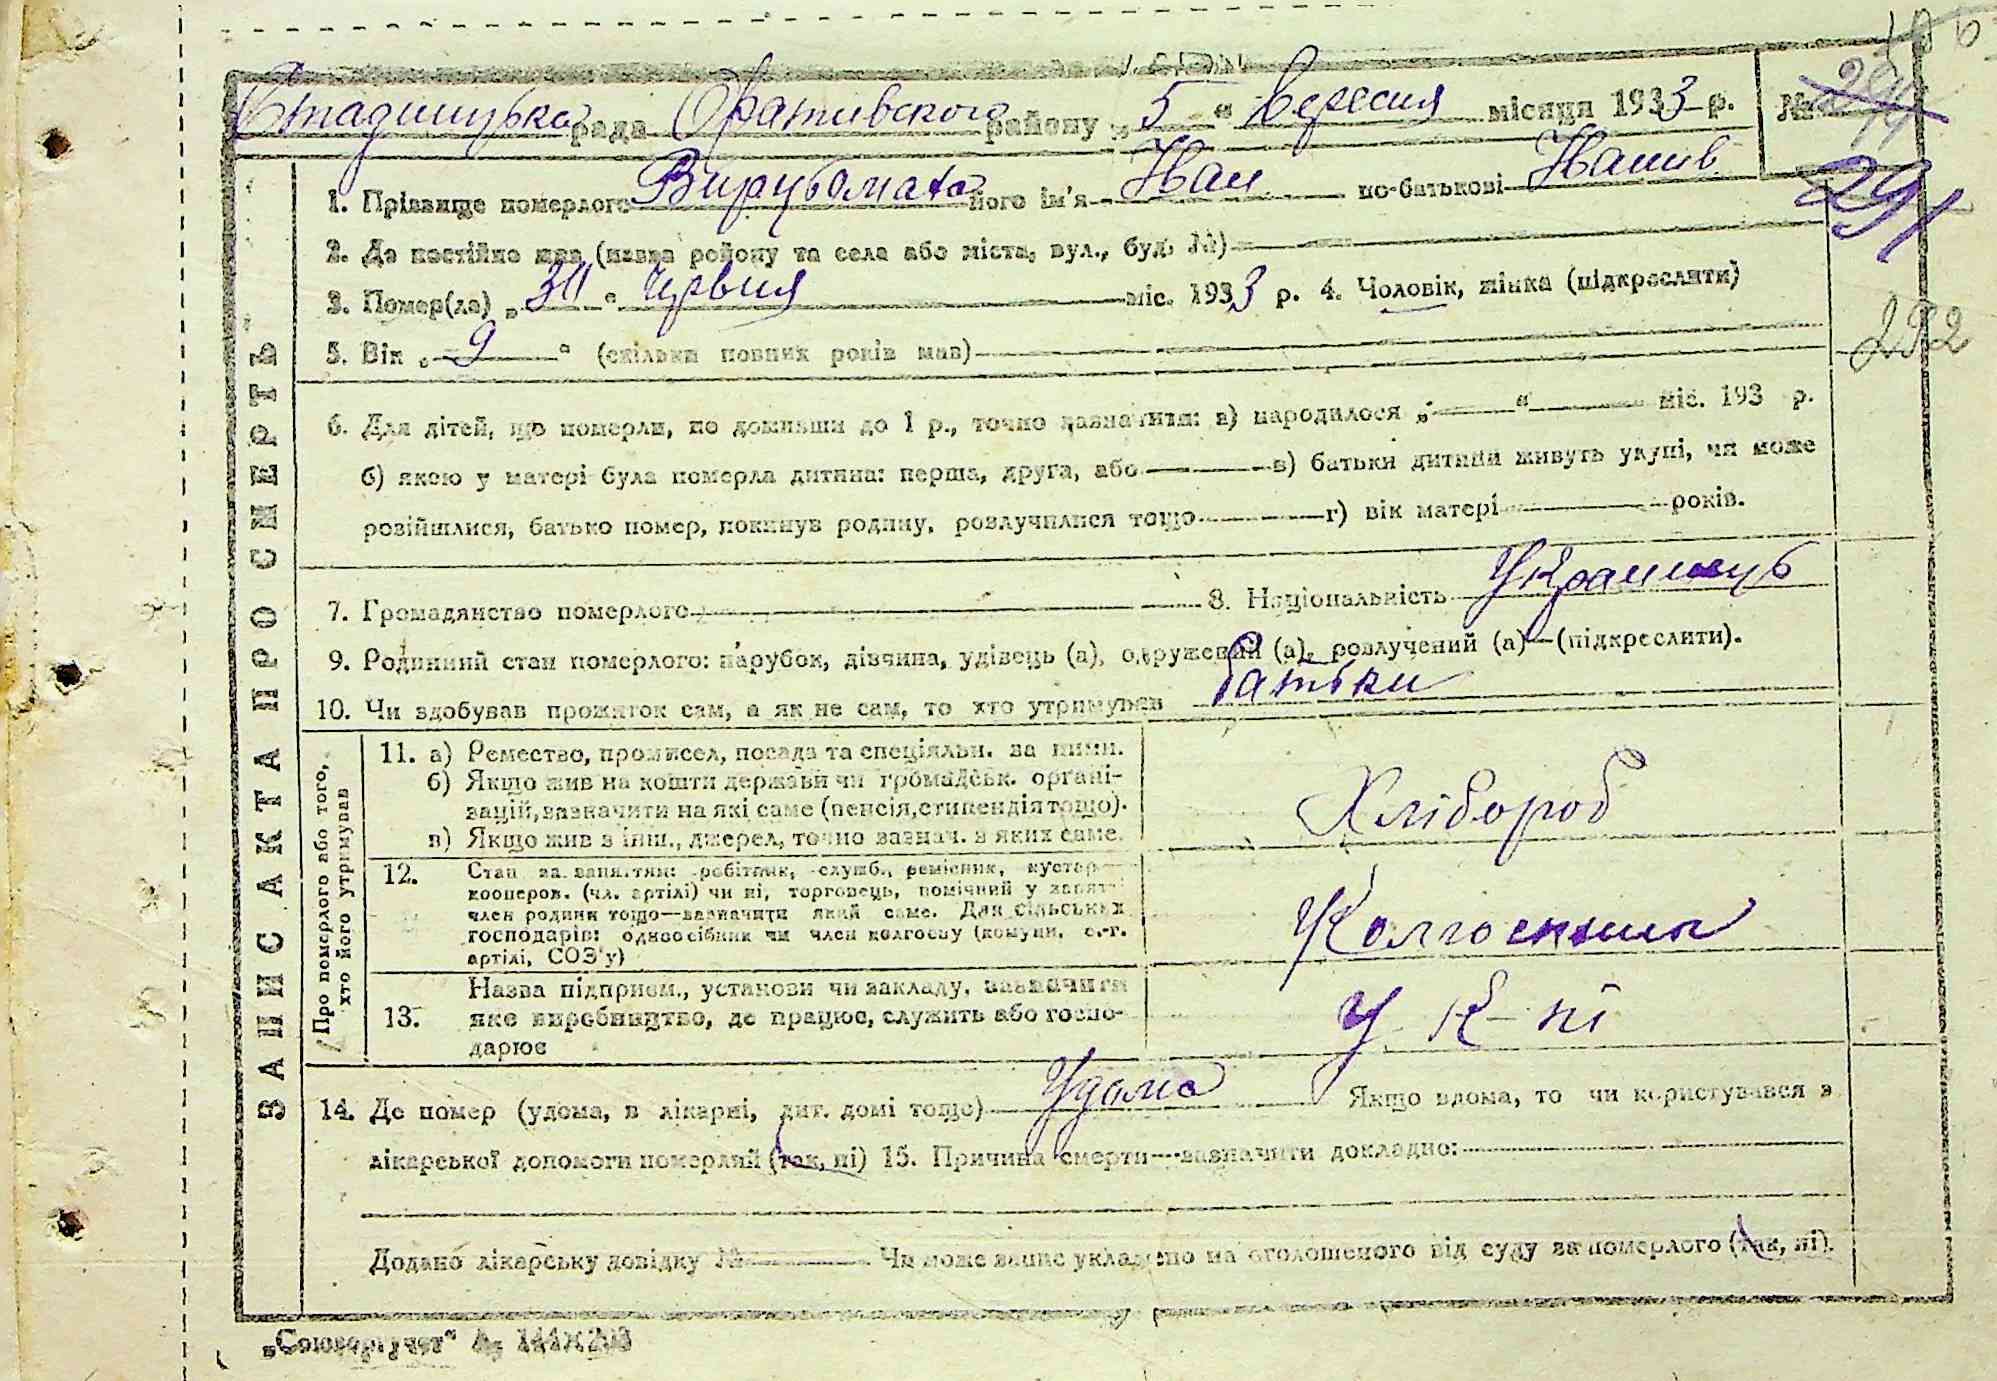 Стадницька рада Фратівського району „5“ Вересня місяця 1933 р. №
291
1. Прізвище померлого Вирубомаха його ім'я Іван по-батькові Іванів
2. Де постійно жив (назва району та села або міста, вул., буд. №)
3. Помер(ла) „30“ червня міс. 1933 р. 4. Чоловік, жінка (підкреслити)
5. Вік „9“ (скільки повних років мав)
252
6. Для дітей, що померли, не доживши до 1 р., точно зазначити: а) народилося „ “ міс. 193 р.
б) якою у матері була померла дитина: перша, друга, або в) батьки дитини живуть укупі, чи може
розійшлися, батько помер, покинув родину, розлучилися тощо г) вік матері років.
7. Громадянство померлого 8. Національність Українець
9. Родинний стан померлого: парубок, дівчина, удівець (а), одружений (а), розлучений (а)—(підкреслити).
10. Чи здобував прожиток сам, а як не сам, то хто утримував батьки
ЗАПИС АКТА ПРО СМЕРТЬ
Про померлого або того, хто його утримував
11. а) Ремество, промисел, посада та спеціяльн. за ними.
б) Якщо жив на кошти держави чи громадськ. органі-
зацій, зазначити на які саме (пенсія, стипендія тощо).
в) Якщо жив з інш., джерел, точно зазнач. з яких саме.
Хлібороб
12. Стан за заняттям: робітник, служб., ремісник, кустар
кооперов. (чл. артілі) чи ні, торговець, помічний у занятті
член родини тощо—зазначити який саме. Для сільських
господарів: одноосібник чи член колгоспу (комуни, с.-г.
артілі, СОЗ'у)
Колгоспник
13. Назва підприєм., установи чи закладу, зазначити
яке виробництво, де працює, служить або госпо-
дарює
У к-пі
14. Де помер (удома, в лікарні, дит. домі тощо) Удома Якщо вдома, то чи користувався з
лікарської допомоги померлий (так, ні) 15. Причина смерти—зазначити докладно:
Додано лікарську довідку № Чи може запис укладено на оголошеного від суду за померлого (так, ні).
„Союзоргучет“